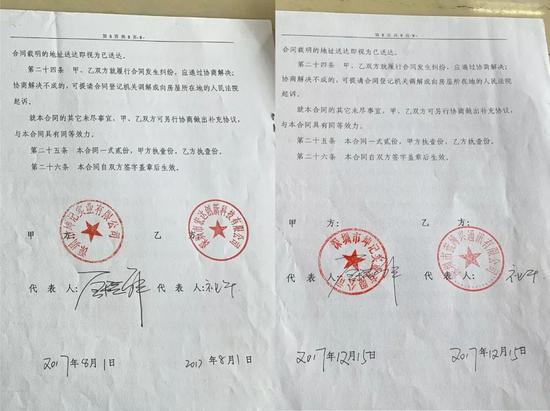 合同载明的地址送达即视为已送达。
第二十四条 甲、乙双方就履行合同发生纠纷，应通过协商解决；
协商解决不成的，可提请合同登记机关调解或向房屋所在地的人民法院
起诉。
就本合同的其它未尽事宜，甲、乙双方可另行协商做出补充协议，
与本合同具有同等效力。
第二十五条 本合同一式贰份，甲方执壹份，乙方执壹份。
第二十六条 本合同自双方签字盖章后生效。
甲 方： 乙 方：
代 表 人： 代 表 人：
2017年8月1日 2017年8月1日
合同载明的地址送达即视为已送达。
第二十四条 甲、乙双方就履行合同发生纠纷，应通过协商解决；
协商解决不成的，可提请合同登记机关调解或向房屋所在地的人民法院
起诉。
就本合同的其它未尽事宜，甲、乙双方可另行协商做出补充协议，
与本合同具有同等效力。
第二十五条 本合同一式贰份，甲方执壹份，乙方执壹份。
第二十六条 本合同自双方签字盖章后生效。
甲 方： 乙 方：
深圳市坤记实业有限公司
代 表 人： 代 表 人：
2017年12月15日 2017年12月15日